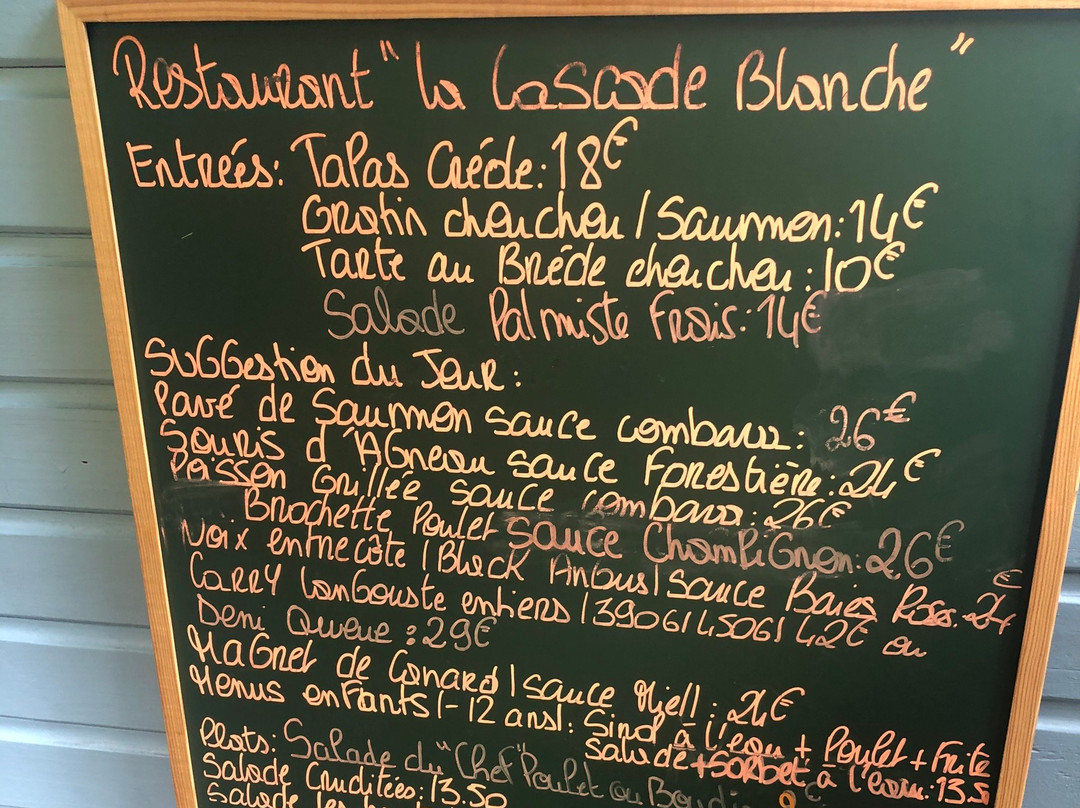 Restaurant "la Cascade Blanche"
Entreés: Tapas Créole: 18€
Gratin chouchou / Saumon: 14€
Tarte au Brède chouchou: 10€
Salade Palmiste Frais: 14€
Suggestion du Jour:
Pavé de Saumon sauce combava: 26€
Souris d'Agneau sauce Forestière: 24€
Poisson Grillée sauce combava: 26€
Brochette Poulet sauce Champignon: 26€
Noix entrecôte / Black Angus / Sauce Baies Roses: 24€
Carry Langouste entiers / 390G / 450G / 42€ ou
Demi Queue: 29€
Magret de Canard / sauce Miell: 24€
Menus enfants 1-12 ans: Sirop à l'eau + Poulet + Frite
Salade + Sorbet à l'eau: 13.5
Plats: Salade du "Chef" Poulet ou
Salade Crudités: 13.50
Salade